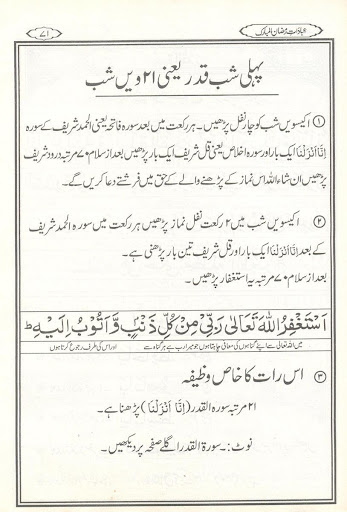 عبادات رمضان المبارک
۷۱
پہلی شب قدر یعنی ۲۱ ویں شب
① اکیسویں شب کو چار نفل پڑھیں۔ ہر رکعت میں بعد سورہ فاتحہ یعنی الحمد شریف کے سورہ
اِنَّا اَنْزَلْنَا ایک بار اور سورہ اخلاص یعنی قل شریف ایک بار پڑھیں بعد از سلام ۷۰ مرتبہ درود شریف
پڑھیں ان شاء اللہ اس نماز کے پڑھنے والے کے حق میں فرشتے دعا کریں گے۔
② اکیسویں شب میں ۲ رکعت نفل نماز پڑھیں ہر رکعت میں سورہ الحمد شریف
کے بعد اِنَّا اَنْزَلْنَا ایک بار اور قل شریف تین بار پڑھنی ہے۔
بعد از سلام ۷۰ مرتبہ یہ استغفار پڑھیں۔
اَسْتَغْفِرُ اللّٰهَ تَعَالٰی رَبِّیْ مِنْ كُلِّ ذَنْۢبٍ وَّ اَتُوْبُ اِلَیْهِ ؕ
میں اللہ تعالیٰ سے اپنے گناہوں کی معافی چاہتا ہوں جو میرا رب ہے ہر گناہ سے اور اس کی طرف رجوع کرتا ہوں
③ اس رات کا خاص وظیفہ
۲۱ مرتبہ سورہ القدر (اِنَّا اَنْزَلْنَا) پڑھنا ہے۔
نوٹ:۔ سورۃ القدر اگلے صفحہ پر دیکھیں۔